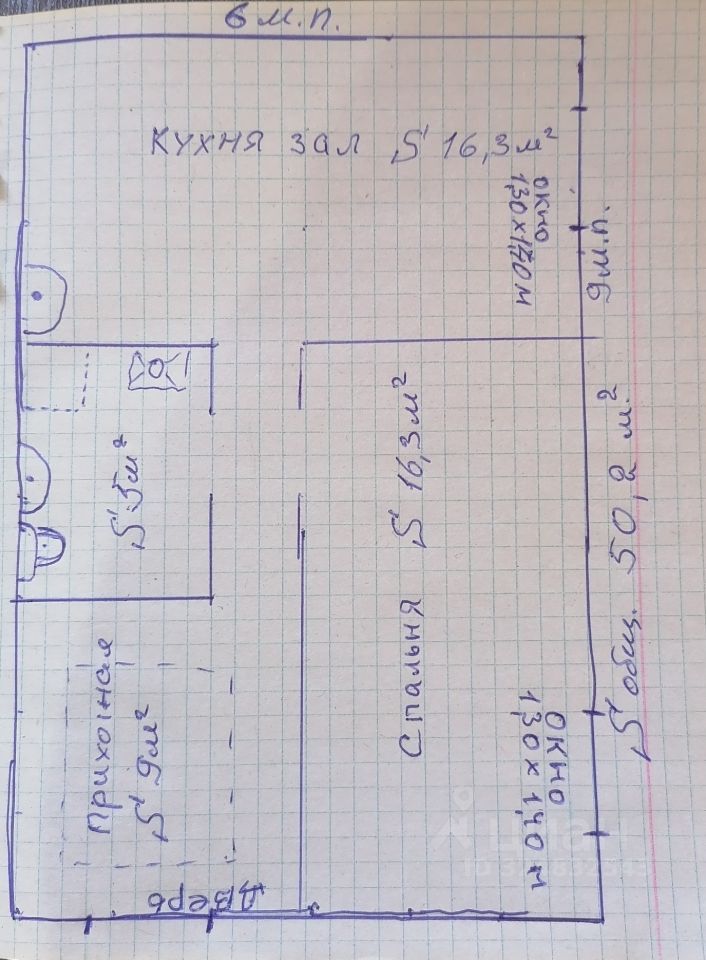 6 м.п.
кухня зал S 16,3 м²
окно
1,30 х 1,70 т
9 м.п.
S 5 м²
Спальня S 16,3 м²
S общ. 50,2 м²
Прихожная
S 9 м²
окно
1,30 х 1,40 т
Дверь
циан